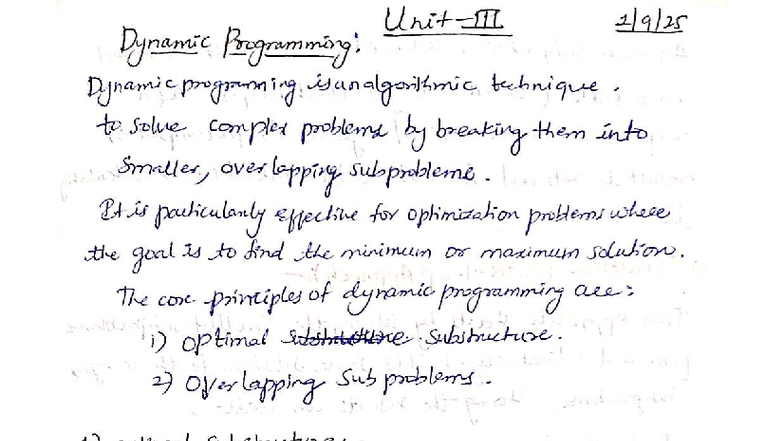 Unit-III
1/9/25
Dynamic Programming:
Dynamic programming is an algorithmic technique.
to solve complex problems by breaking them into
smaller, overlapping subproblems.
It is particularly effective for optimization problems where
the goal is to find the minimum or maximum solution.
The core principles of dynamic programming are:
1) Optimal substructure.
2) Overlapping Sub problems.